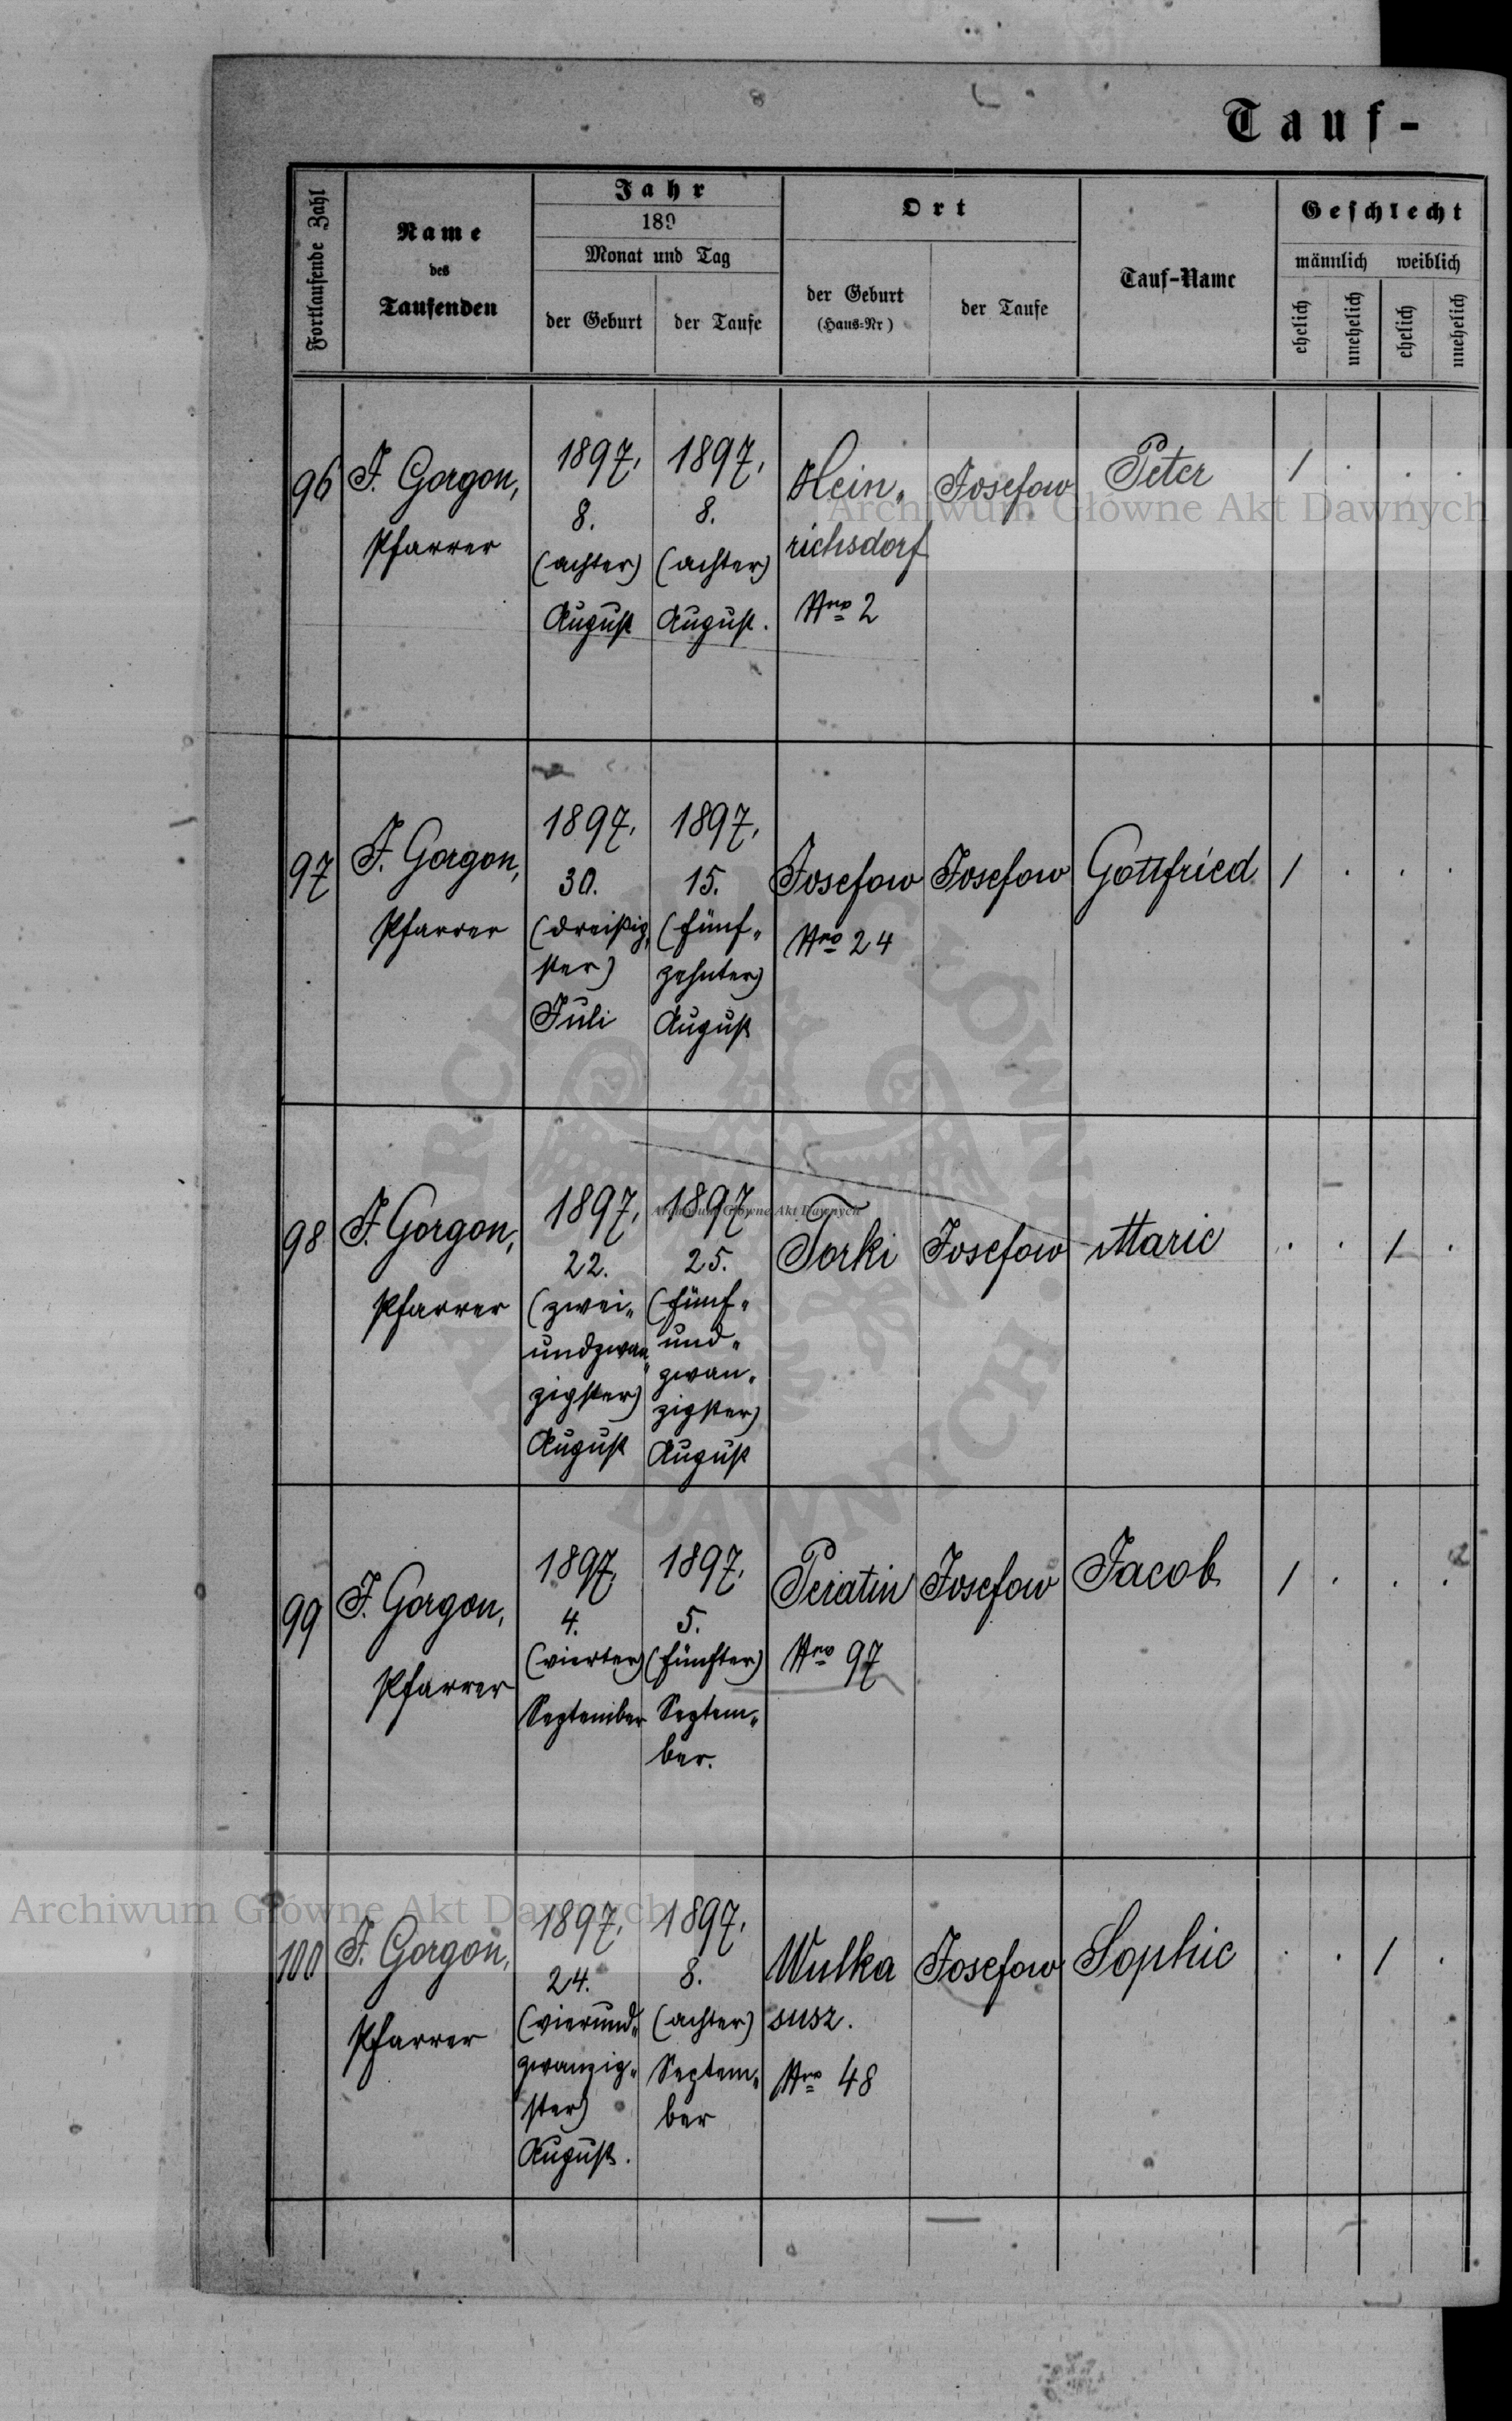 Tauf-
Fortlaufende Zahl
Name
des
Taufenden
Jahr
189
Monat und Tag
der Geburt
der Taufe
Ort
der Geburt
(Haus-Nr)
der Taufe
Tauf-Name
Geschlecht
männlich weiblich
ehelich
unehelich
ehelich
unehelich
96
F. Gorgon,
Pfarrer
1897,
8.
(achter)
August
1897,
8.
(achter)
August.
Hein„
richsdorf
Nro 2
Josefow
Peter
/ . . .
97
F. Gorgon,
Pfarrer
1897,
30.
(dreißig„
ster)
Juli
1897,
15.
(fünf„
zehnter)
August
Josefow
Nro 24
Josefow
Gottfried
/ . . .
98
F. Gorgon,
Pfarrer
1897,
22.
(zwei„
undzwan„
zigster)
August
1897
25.
(fünf„
und„
zwan„
zigster)
August
Torki
Josefow
Marie
. . / .
99
F. Gorgon,
Pfarrer
1897,
4.
(vierter)
September
1897,
5.
(fünfter)
Septem„
ber.
Peratin
Nro 97
Josefow
Jacob
/ . . .
100
F. Gorgon,
Pfarrer
1897,
24.
(vierund„
zwanzig„
ster)
August.
1897,
8.
(achter)
Septem„
ber
Wulka
susz.
Nro 48
Josefow
Sophie
. . / .
Archiwum Główne Akt Dawnych
Archiwum Główne Akt Dawnych
Archiwum Główne Akt Dawnych
ARCHIWUM GŁÓWNE AKT DAWNYCH